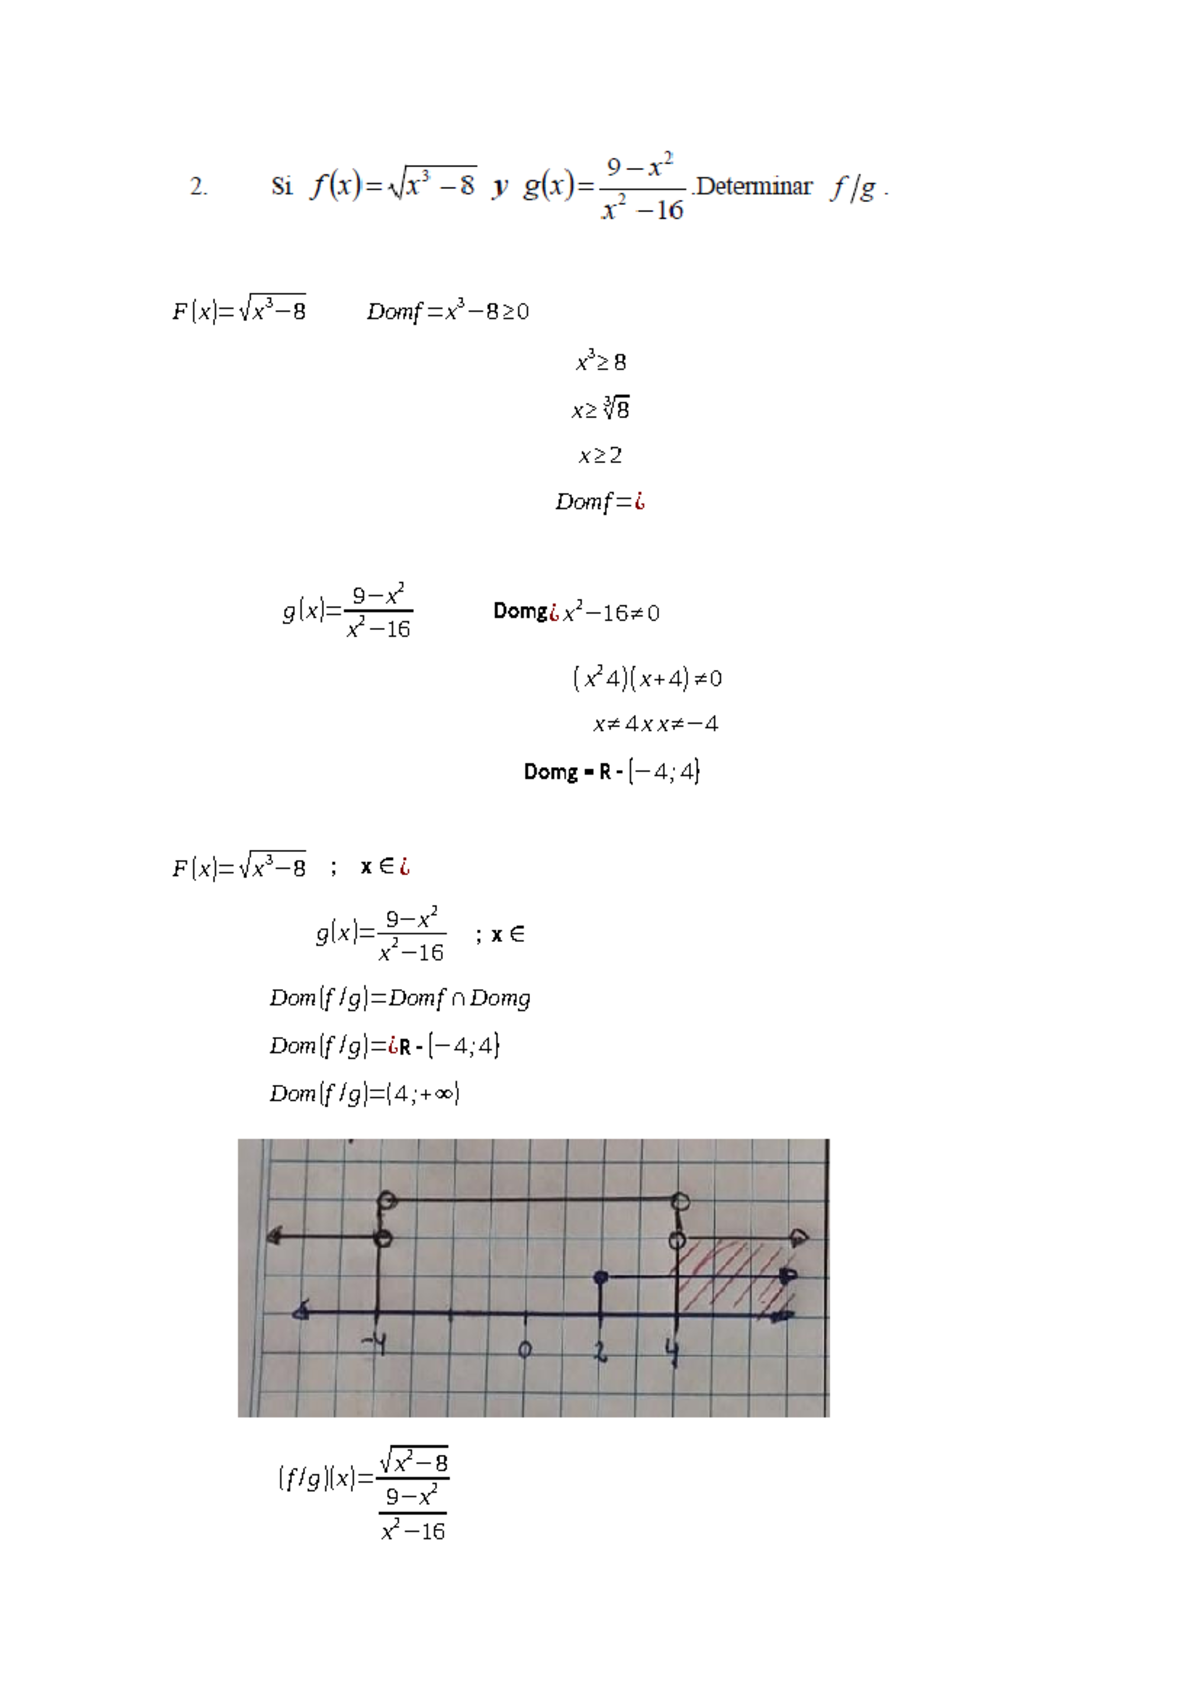 2. Si f(x)=√(x³−8) y g(x)=(9−x²)/(x²−16) .Determinar f/g .
F(x)=√(x³−8) Domf=x³−8≥0
x³≥8
x≥∛8
x≥2
Domf=¿
g(x)=(9−x²)/(x²−16) Domg¿x²−16≠0
(x²4)(x+4)≠0
x≠4xx≠−4
Domg = R - {−4;4}
F(x)=√(x³−8) ; x∈¿
g(x)=(9−x²)/(x²−16) ; x∈
Dom(f/g)=Domf∩Domg
Dom(f/g)=¿R - {−4;4}
Dom(f/g)=(4;+∞)
-4 0 2 4
(f/g)(x)=√(x²−8)/((9−x²)/(x²−16))